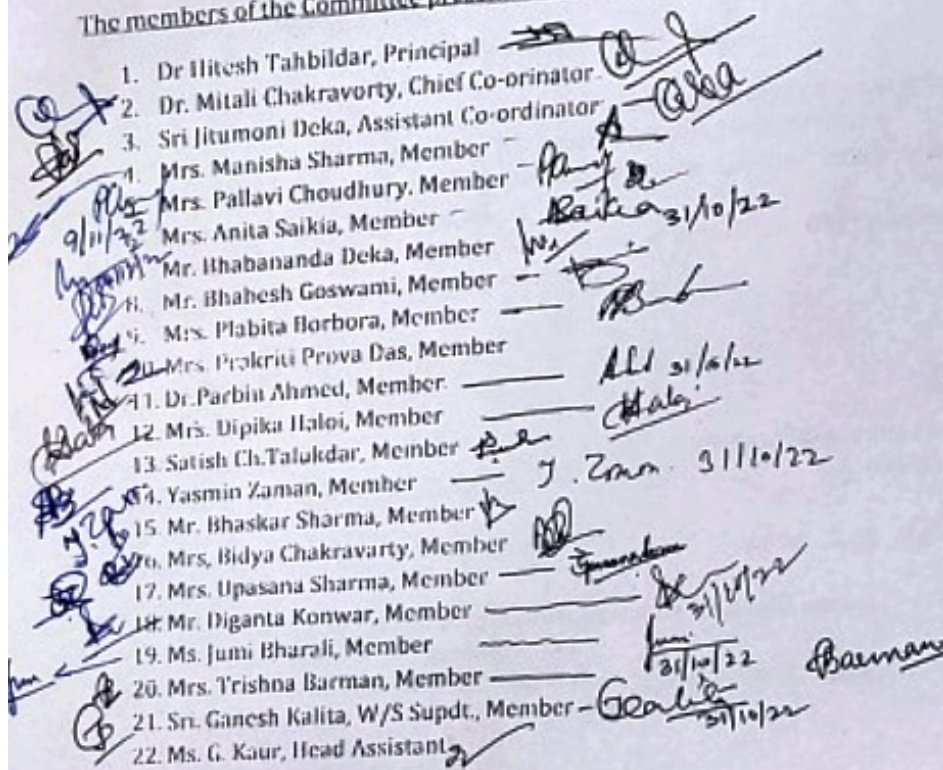 The members of the Committee
1. Dr Hitesh Tahbildar, Principal
2. Dr. Mitali Chakravorty, Chief Co-orinator
3. Sri Jitumoni Deka, Assistant Co-ordinator
4. Mrs. Manisha Sharma, Member
Mrs. Pallavi Choudhury, Member
9/11/22 Mrs. Anita Saikia, Member Saikia 31/10/22
Mr. Bhabananda Deka, Member
8. Mr. Bhabesh Goswami, Member
9. Mrs. Plabita Borbora, Member
10. Mrs. Prakriti Prova Das, Member
11. Dr. Parbin Ahmed, Member
12. Mrs. Dipika Haloi, Member
13. Satish Ch.Talukdar, Member
14. Yasmin Zaman, Member J. Zaman. 31/10/22
15. Mr. Bhaskar Sharma, Member
16. Mrs, Bidya Chakravarty, Member
17. Mrs. Upasana Sharma, Member
18. Mr. Diganta Konwar, Member 31/10/22
19. Ms. Jumi Bharali, Member Jumi 31/10/22
20. Mrs. Trishna Barman, Member Barman
21. Sri. Ganesh Kalita, W/S Supdt., Member 31/10/22
22. Ms. G. Kaur, Head Assistant